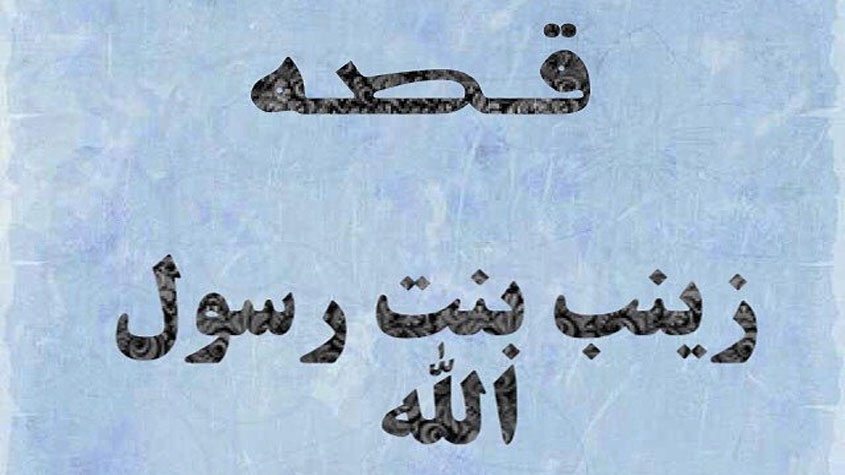 قصه
زينب بنت رسول
الله